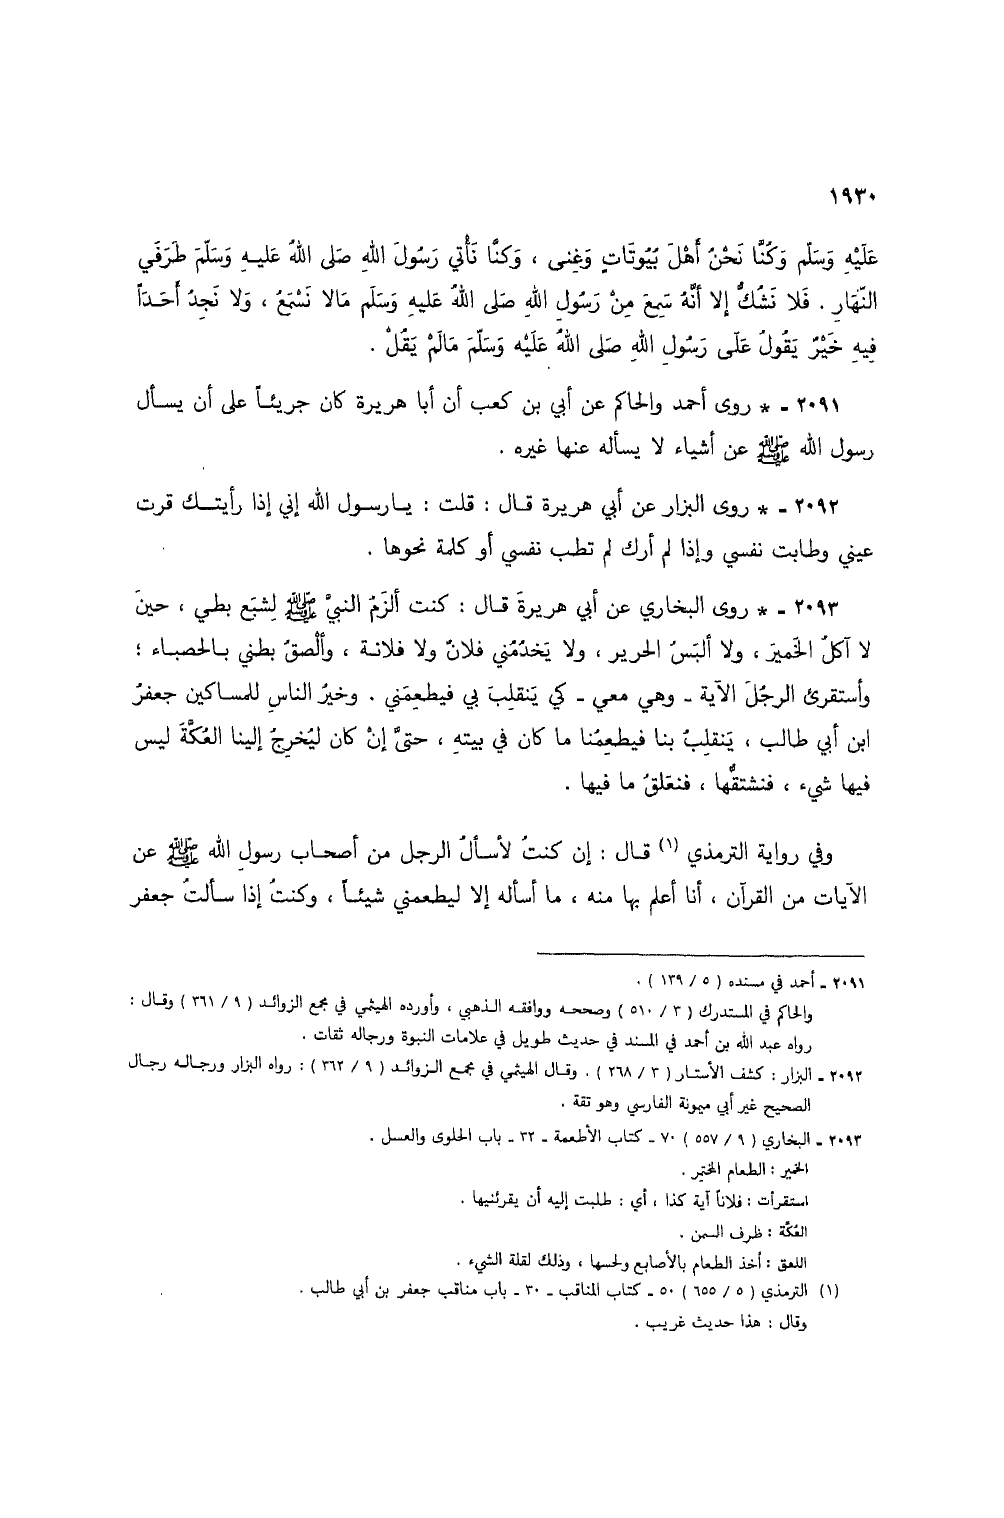 ١٩٣٠
عَلَيْهِ وَسَلّم وَكُنَّا نَحْنُ أَهْلَ بُيُوتَاتٍ وَغِنى ، وَكنَّا نَأْتي رَسُولَ اللهِ صَلى اللهُ عَليـهِ وَسَلّمَ طَرَفَي
النّهَارِ . فَلا نَشُكُّ إلا أنَّهُ سَمِعَ مِنْ رَسُولِ اللهِ صَلى اللهُ عَليهِ وَسَلَم مَالا نَسْمَعُ ، وَلا نَجِدُ أَحَـدَاً
فِيهِ خَيْرٌ يَقُولُ عَلَى رَسُولِ اللهِ صَلى اللهُ عَلَيْه وَسَلّمَ مَالَمْ يَقُلْ .
٢٠٩١ - * روى أحمد والحاكم عن أبي بن كعب أن أبا هريرة كان جريئـاً على أن يسـأل
رسول الله ﷺ عن أشياء لا يسأله عنها غيره .
٢٠٩٢ - * روى البزار عن أبي هريرة قـال : قلت : يـارسـول الله إني إذا رأيتـك قرت
عيني وطابت نفسي وإذا لم أرك لم تطب نفسي أو كلمة نحوها .
٢٠٩٣ - * روى البخاري عن أبي هريرةَ قـال : كنت ألزَمُ النبيَّ ﷺ لِشبَع بطي ، حينَ
لا آكلُ الخَميرَ ، ولا ألبَسُ الحرير ، ولا يَخدُمُني فلانٌ ولا فلانـة ، وألْصقُ بطني بـالحصبـاء ؛
وأستقرئ الرجُلَ الآية - وهي معي - كي يَنقلِبَ بي فيطعِمَني . وخيرُ الناسِ للمسـاكين جعفرُ
ابن أبي طالب ، يَنقلِبُ بنا فيطعِمُنا ما كان في بيتهِ ، حتىَّ إنْ كان ليُخرِجُ إلينا العُكَّةَ ليس
فيها شيء ، فنشتقُّها ، فنعَلقُ ما فيها .
وفي رواية الترمذي (١) قـال : إن كنتُ لأسـألُ الرجل من أصحـاب رسولِ الله ﷺ عن
الآيات من القرآن ، أنا أعلم بها منه ، ما أسأله إلا ليطعمني شيئـاً ، وكنتُ إذا سـألتُ جعفر
٢٠٩١ - أحمد في مسنده ( ٥ / ١٣٩ ) .
والحاكم في المستدرك ( ٣ / ٥١٠ ) وصححـه ووافقـه الـذهبي ، وأورده الهيثمي في مجمع الزوائـد ( ٩ / ٣٦١ ) وقـال :
رواه عبد الله بن أحمد في المسند في حديث طويل في علامات النبوة ورجاله ثقات .
٢٠٩٢ - البزار : كشف الأستـار ( ٣ / ٢٦٨ ) . وقـال الهيثمي في مجمـع الـزوائـد ( ٩ / ٣٦٢ ) : رواه البزار ورجـالـه رجـال
الصحيح غير أبي ميمونة الفارسي وهو ثقة .
٢٠٩٣ - البخاري ( ٩ / ٥٥٧ ) ٧٠ - كتاب الأطعمة - ٣٢ - باب الحلوى والعسل .
الخمير : الطعام المختمر .
استقرأت : فلاناً آية كذا ، أي : طلبت إليه أن يقرئنيها .
العُكَّة : ظرف السمن .
اللعق : أخذ الطعام بالأصابع ولحسها ، وذلك لقلة الشيء .
(١) الترمذي ( ٥ / ٦٥٥ ) ٥٠ - كتاب المناقب - ٣٠ - باب مناقب جعفر بن أبي طالب .
وقال : هذا حديث غريب .